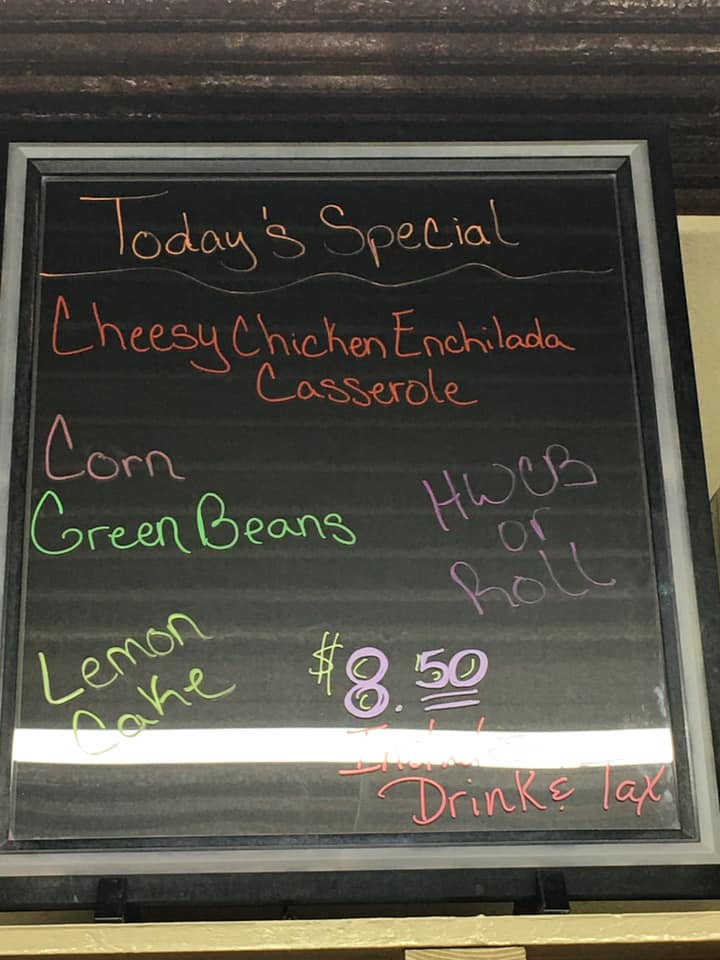 Today's Special
Cheesy Chicken Enchilada
Casserole
Corn
Green Beans
HWCB
or
Roll
Lemon
Cake
$8.50
Drink & Tax